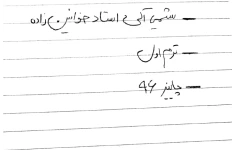 – شیمی آلی استاد خوانین زاده
– ترم اول
– پاییز ۹۶